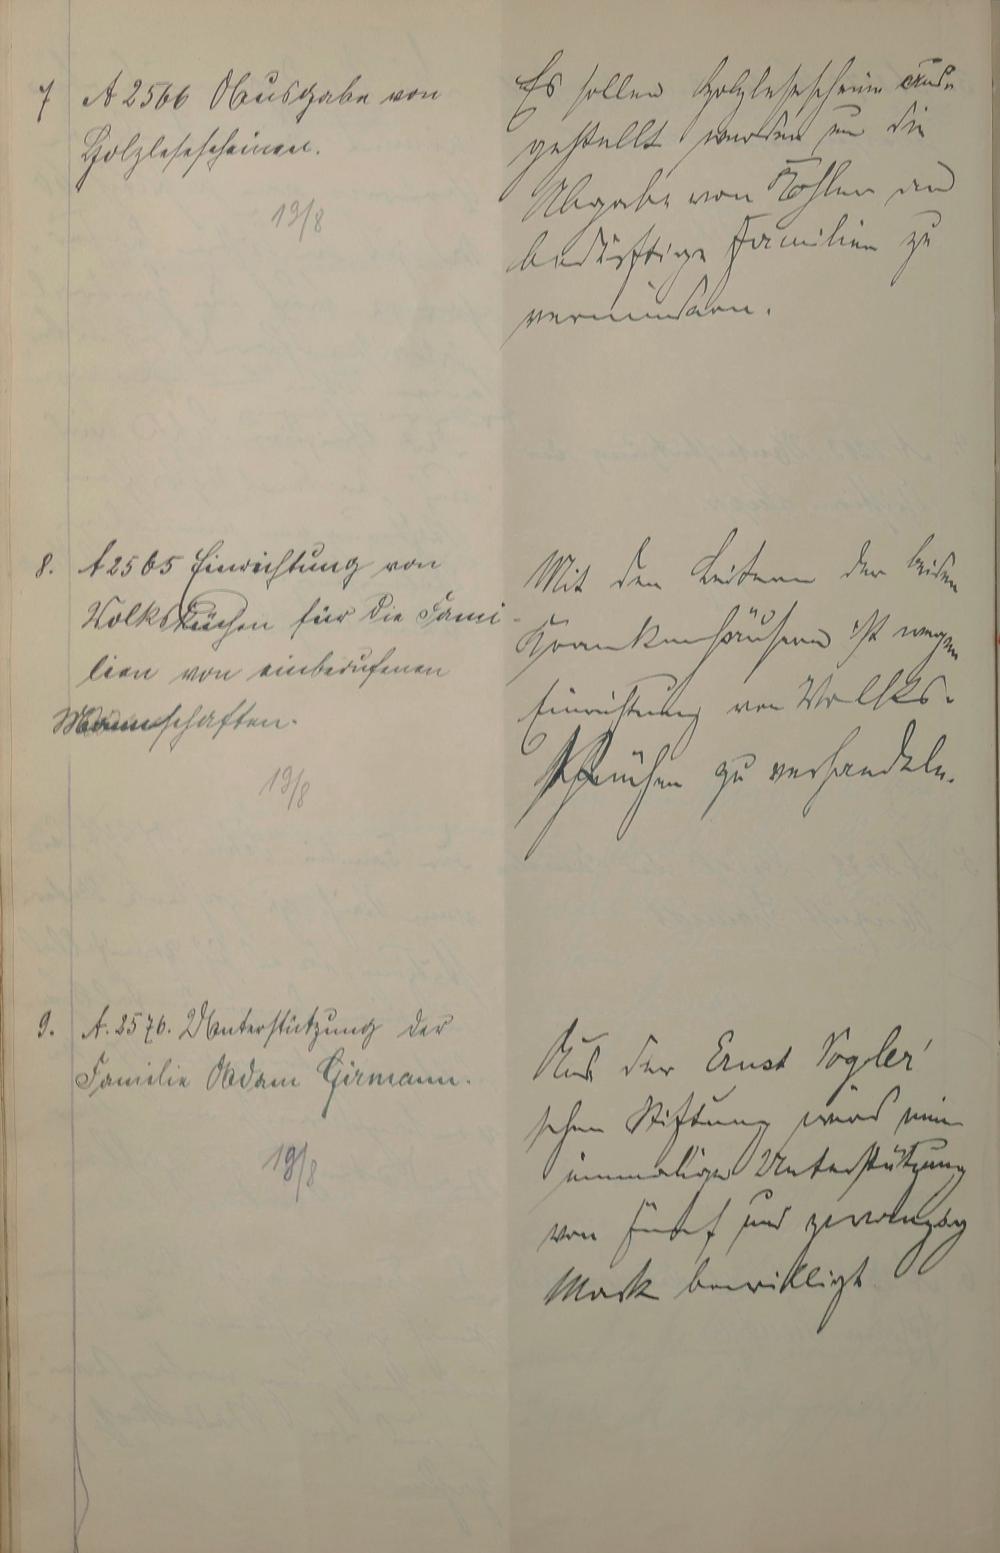 7 A 2566 Ausgabe von
Holzlesescheinen.
19/8
Es sollen Holzlesescheine aus-
gestellt werden um die
Abgabe von Kohlen an
bedürftige Familien zu
vermindern.
8. A 2565 Einrichtung von
Volksküchen für die Fami-
lien von einberufenen
Mannschaften.
19/8
Mit den Leitern der beiden
Krankenhäusern ist wegen
Einrichtung von Volks-
küchen zu verhandeln.
9. A. 2576. Unterstützung der
Familie Adam Girmann.
19/8
Aus der Ernst Vogler'
schen Stiftung wird eine
einmalige Unterstützung
von fünf und zwanzig
Mark bewilligt